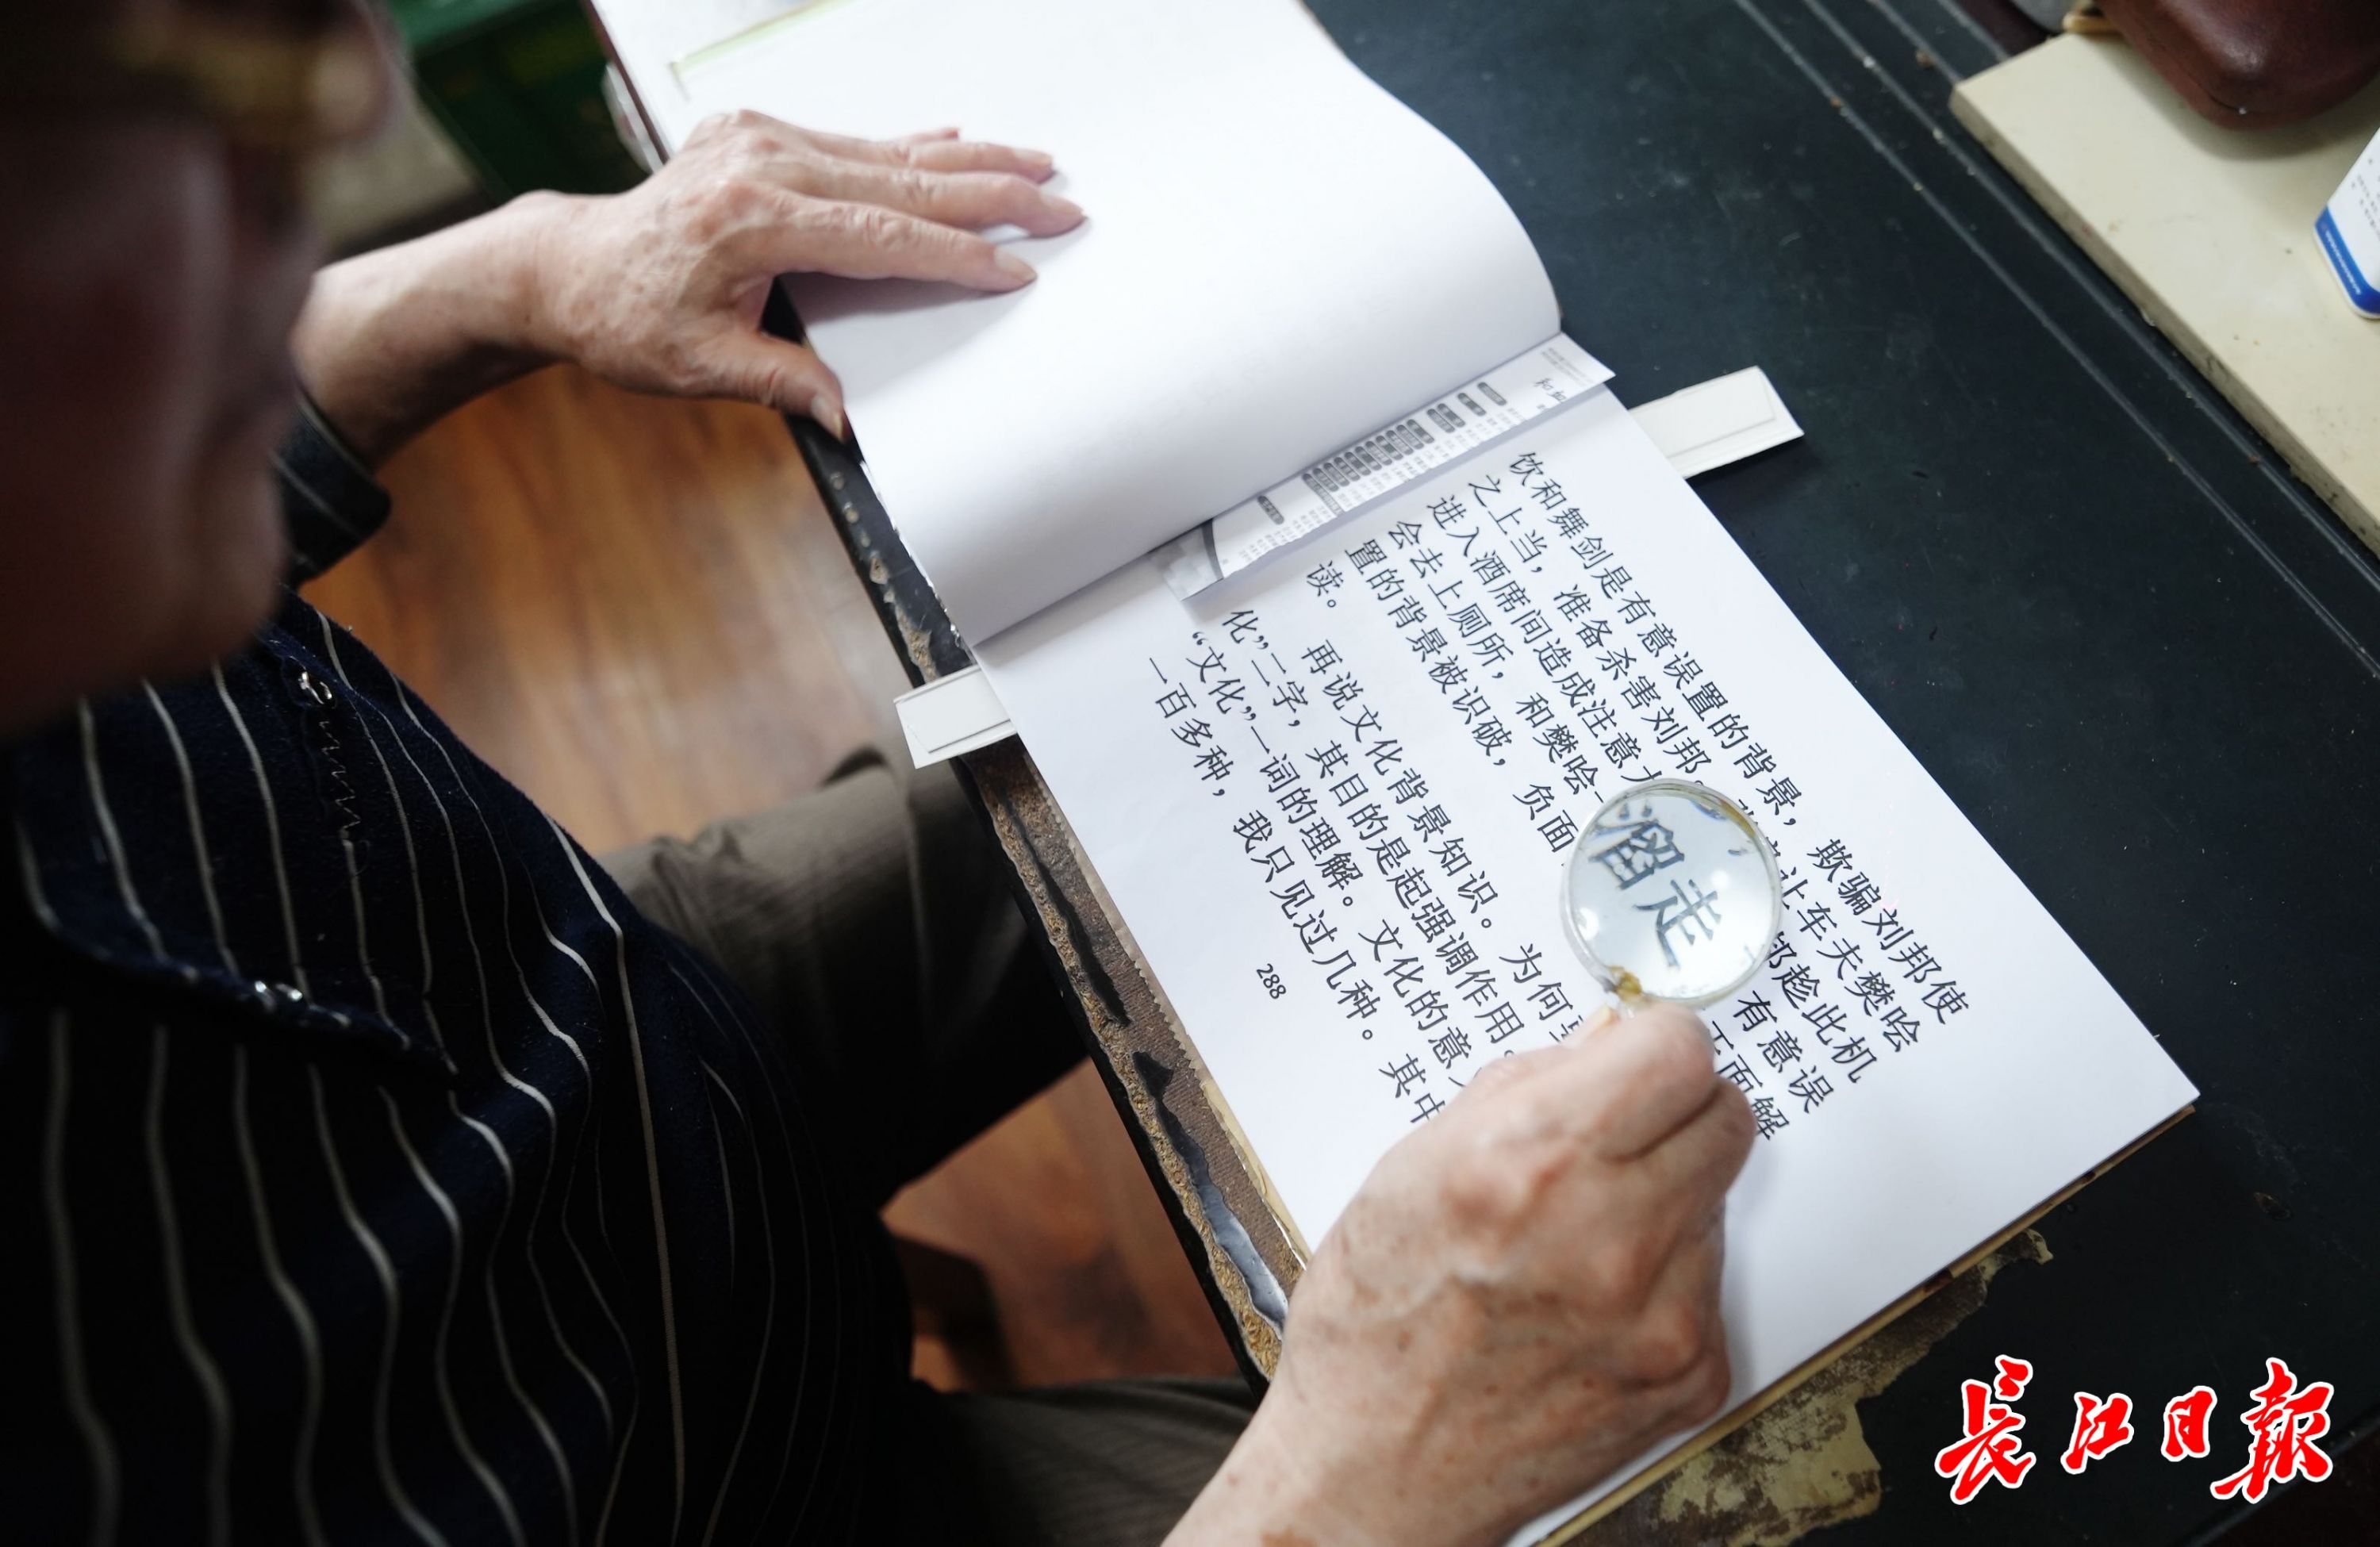 饮和舞剑是有意误置的背景，欺骗刘邦使
之上当，准备杀害刘邦。让车夫樊哙
进入酒席间造成注意力邦趁此机
会去上厕所，和樊哙一溜走，有意误
置的背景被识破，负面正面解
读。
再说文化背景知识。为何
化”二字，其目的是起强调作用。
“文化”一词的理解。文化的意
一百多种，我只见过几种。其中
288
長江日報